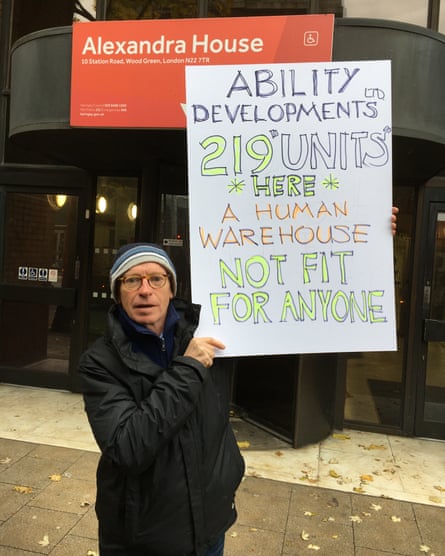 Alexandra House
10 Station Road, Wood Green, London N22 7TR
ABILITY
DEVELOPMENTS LTD
219 "UNITS"
* HERE *
A HUMAN
WAREHOUSE
NOT FIT
FOR ANYONE